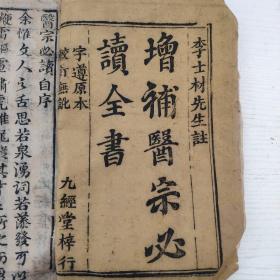 李士材先生註
增補醫宗必
讀全書
字遵原本
校訂無訛
九經堂梓行
醫宗必讀自序
余惟文人之舌思若泉湧詞若藻發可以